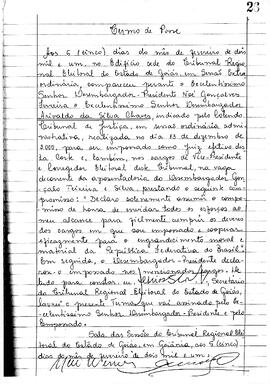 23
Termo de Posse
Aos 5 (cinco) dias do mês de fevereiro de dois
mil e um, no Edifício sede do Tribunal Regional
Eleitoral do Estado de Goiás, em Sessão Extra-
ordinária, compareceu perante o Excelentíssimo
Senhor Desembargador-Presidente Noé Gonçalves
Ferreira o Excelentíssimo Senhor Desembargador
da Silva Chaves, indicado pelo Egrégio
Tribunal de Justiça, em sessão ordinária admi-
nistrativa, realizada no dia 13 de dezembro de
2000, para ser empossado como Juiz efetivo des-
ta Corte e, também, nos cargos de Vice-Presidente
e Corregedor Eleitoral deste Tribunal, na vaga
decorrente da aposentadoria do Desembargador Gon-
çalo Teixeira e Silva, prestando o seguinte com-
promisso: "Declaro solenemente assumir o compro-
misso de honra de envidar todos os esforços ao
meu alcance para fielmente cumprir os deveres
dos cargos em que sou empossado e cooperar
eficazmente para o engrandecimento moral e
material da República Federativa do Brasil".
Em seguida, o Desembargador-Presidente decla-
rou o empossado nos mencionados cargos. E,
para constar eu, Secretário
do Tribunal Regional Eleitoral do Estado de Goiás,
lavrei o presente Termo que vai assinado pelo Ex-
celentíssimo Senhor Desembargador-Presidente e pelo
empossado.
Sala das Sessões do Tribunal Regional
Eleitoral do Estado de Goiás, em Goiânia, aos 5 (cinco)
dias do mês de fevereiro de dois mil e um.